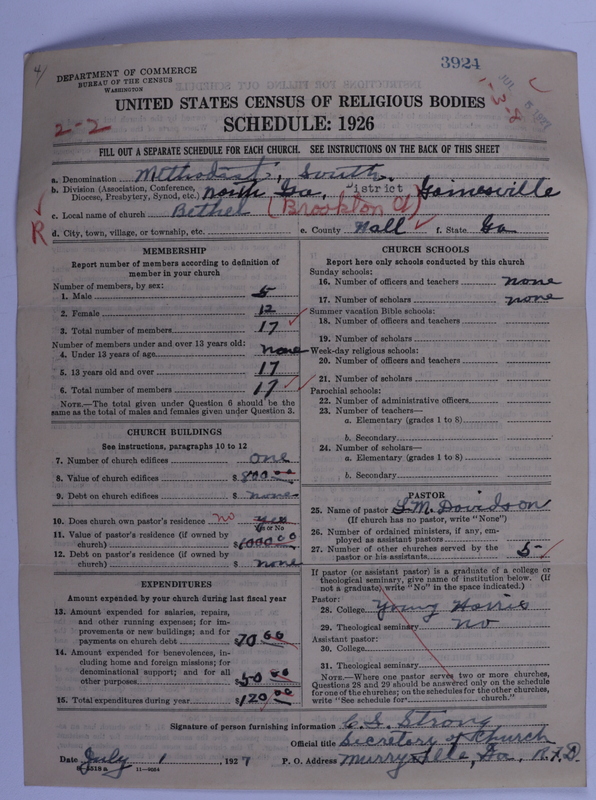 4/
3924
DEPARTMENT OF COMMERCE
BUREAU OF THE CENSUS
WASHINGTON
UNITED STATES CENSUS OF RELIGIOUS BODIES
SCHEDULE: 1926
2-2
1-3-8
FILL OUT A SEPARATE SCHEDULE FOR EACH CHURCH. SEE INSTRUCTIONS ON THE BACK OF THIS SHEET
a. Denomination Methodist, South
b. Division (Association, Conference, Diocese, Presbytery, Synod, etc.) North Ga. District Gainesville
c. Local name of church Bethel (Brookton
R
d. City, town, village, or township, etc. e. County Hall f. State Ga
MEMBERSHIP
Report number of members according to definition of
member in your church
Number of members, by sex:
1. Male 5
2. Female 12
3. Total number of members 17
Number of members under and over 13 years old:
4. Under 13 years of age none
5. 13 years old and over 17
6. Total number of members 17
NOTE.—The total given under Question 6 should be the
same as the total of males and females given under Question 3.
CHURCH BUILDINGS
See instructions, paragraphs 10 to 12
7. Number of church edifices one
8. Value of church edifices $ 800 00
9. Debt on church edifices $ none
10. Does church own pastor's residence no yes
Yes or No
11. Value of pastor's residence (if owned by
church) $ 1000 00
12. Debt on pastor's residence (if owned by
church) $ none
EXPENDITURES
Amount expended by your church during last fiscal year
13. Amount expended for salaries, repairs,
and other running expenses; for im-
provements or new buildings; and for
payments on church debt $ 70 00
14. Amount expended for benevolences, in-
cluding home and foreign missions; for
denominational support; and for all
other purposes $ 50 00
15. Total expenditures during year $ 120 00
CHURCH SCHOOLS
Report here only schools conducted by this church
Sunday schools:
16. Number of officers and teachers none
17. Number of scholars none
Summer vacation Bible schools:
18. Number of officers and teachers
19. Number of scholars
Week-day religious schools:
20. Number of officers and teachers
21. Number of scholars
Parochial schools:
22. Number of administrative officers
23. Number of teachers—
a. Elementary (grades 1 to 8)
b. Secondary
24. Number of scholars—
a. Elementary (grades 1 to 8)
b. Secondary
PASTOR
25. Name of pastor L. M. Davidson
(If church has no pastor, write "None")
26. Number of ordained ministers, if any, em-
ployed as assistant pastors
27. Number of other churches served by the
pastor or his assistants 5
If pastor (or assistant pastor) is a graduate of a college or
theological seminary, give name of institution below. (If
not a graduate, write "No" in the space indicated.)
Pastor:
28. College Young Harris
29. Theological seminary No
Assistant pastor:
30. College
31. Theological seminary
NOTE.—Where one pastor serves two or more churches,
Questions 28 and 29 should be answered only on the schedule
for one of the churches; on the schedules for the other churches,
write "See schedule for church."
Signature of person furnishing information C. G. Strong
Official title Secretary of Church
Date July 1, 1927 P. O. Address Murryville, Ga, R.F.D.
11—8684